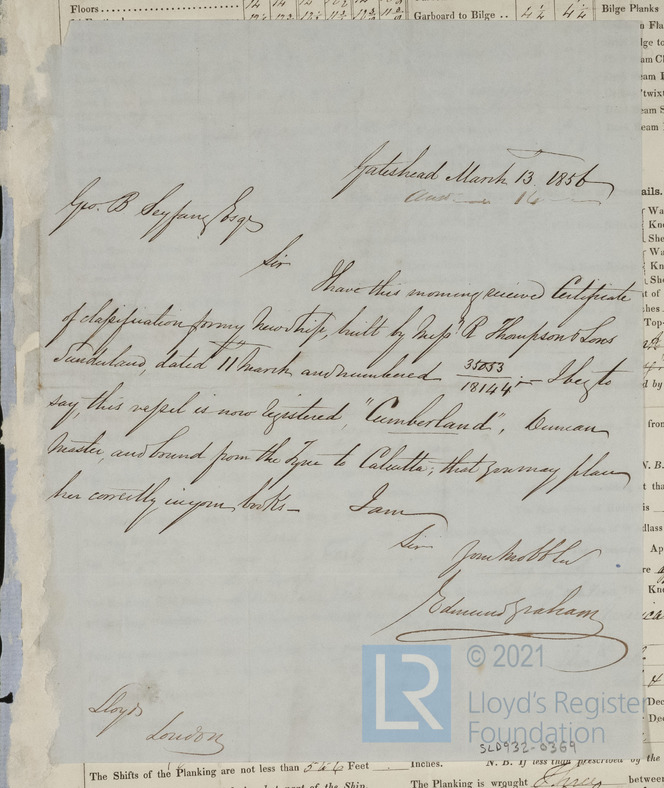 Floors
Garboard to Bilge .. 4½ 4½
Bilge Planks
Gateshead March 13. 1856
Geo. B Seyfang Esqr
Sir
I have this morning received Certificate
of classification for my New Ship, built by Messrs R Thompson & Sons
Sunderland, dated 11 March and numbered 35053/18144 – I beg to
say, this vessel is now registered, "Cumberland", Duncan
Master, and bound from the Tyne to Calcutta; that you may place
her correctly in your books –
I am
Sir
Your Mo Ob Sr
Edmund Graham
Lloyds
London
LR
© 2021
Lloyd's Register
Foundation
SLD932-0369
The Shifts of the Planking are not less than 5 & 6 Feet Inches.
N. B. If less than prescribed by the
The Planking is wrought between